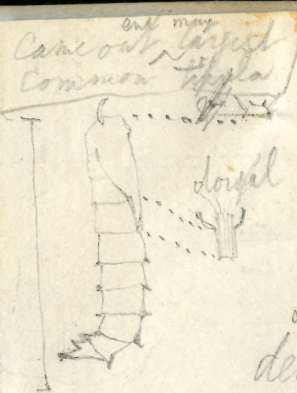 end may
Came out largest
Common Tipula
dorsal
de